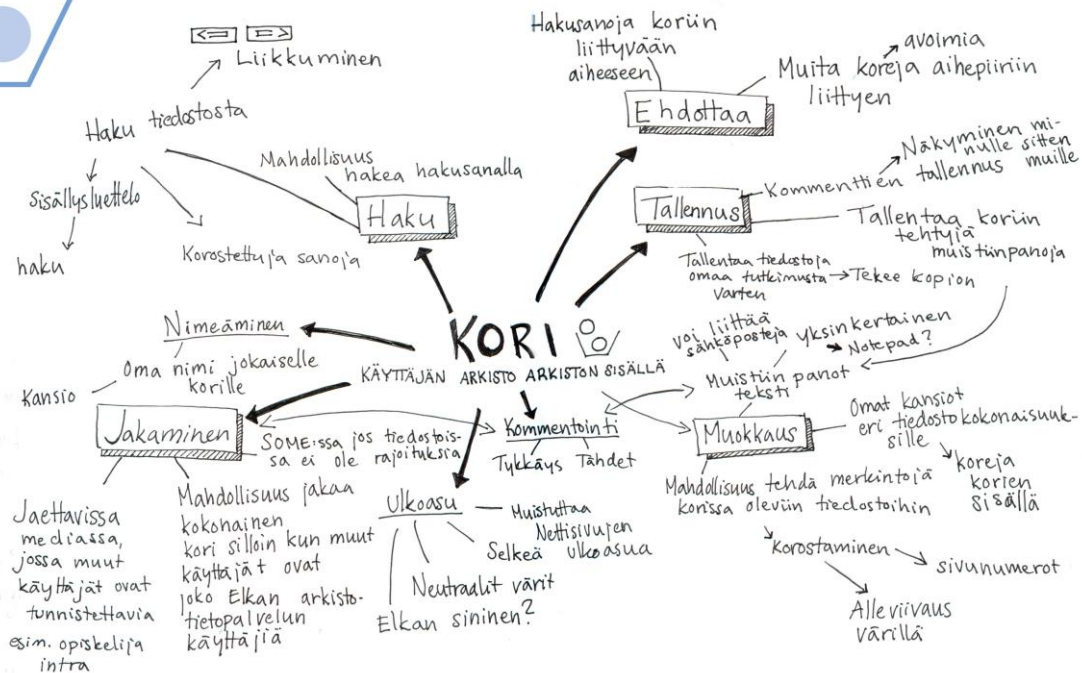 Liikkuminen
Haku tiedostosta
Sisällysluettelo
haku
Korostettuja sanoja
Mahdollisuus
hakea hakusanalla
Haku
Hakusanoja koriin
liittyvään
aiheeseen
Ehdottaa
Muita koreja aihepiiriin
liittyen
avoimia
Tallennus
Kommenttien tallennus muille
Näkyminen mi-
nulle sitten
Tallentaa koriin
tehtyjä
muistiinpanoja
Tallentaa tiedostoja
omaa tutkimusta
varten
Tekee kopion
KORI
KÄYTTÄJÄN ARKISTO ARKISTON SISÄLLÄ
Nimeäminen
Oma nimi jokaiselle
korille
Kansio
Jakaminen
SOMEissa jos tiedostois-
sa ei ole rajoituksia
Jaettavissa
mediassa,
jossa muut
käyttäjät ovat
tunnistettavia
esim. opiskelija
intra
Mahdollisuus jakaa
kokonainen
kori silloin kun muut
käyttäjät ovat
joko Elkan arkisto-
tietopalvelun
käyttäjiä
Kommentointi
Tykkäys Tähdet
Ulkoasu
Muistuttaa
Nettisivujen
ulkoasua
Selkeä
Neutraalit värit
Elkan sininen?
voi liittää
sähköposteja
yksinkertainen
Notepad?
Muistiin panot
teksti
Muokkaus
Omat kansiot
eri tiedostokokonaisuuk-
sille
koreja
korien
sisällä
Mahdollisuus tehdä merkintöjä
korissa oleviin tiedostoihin
Korostaminen
sivunumerot
Alleviivaus
värillä